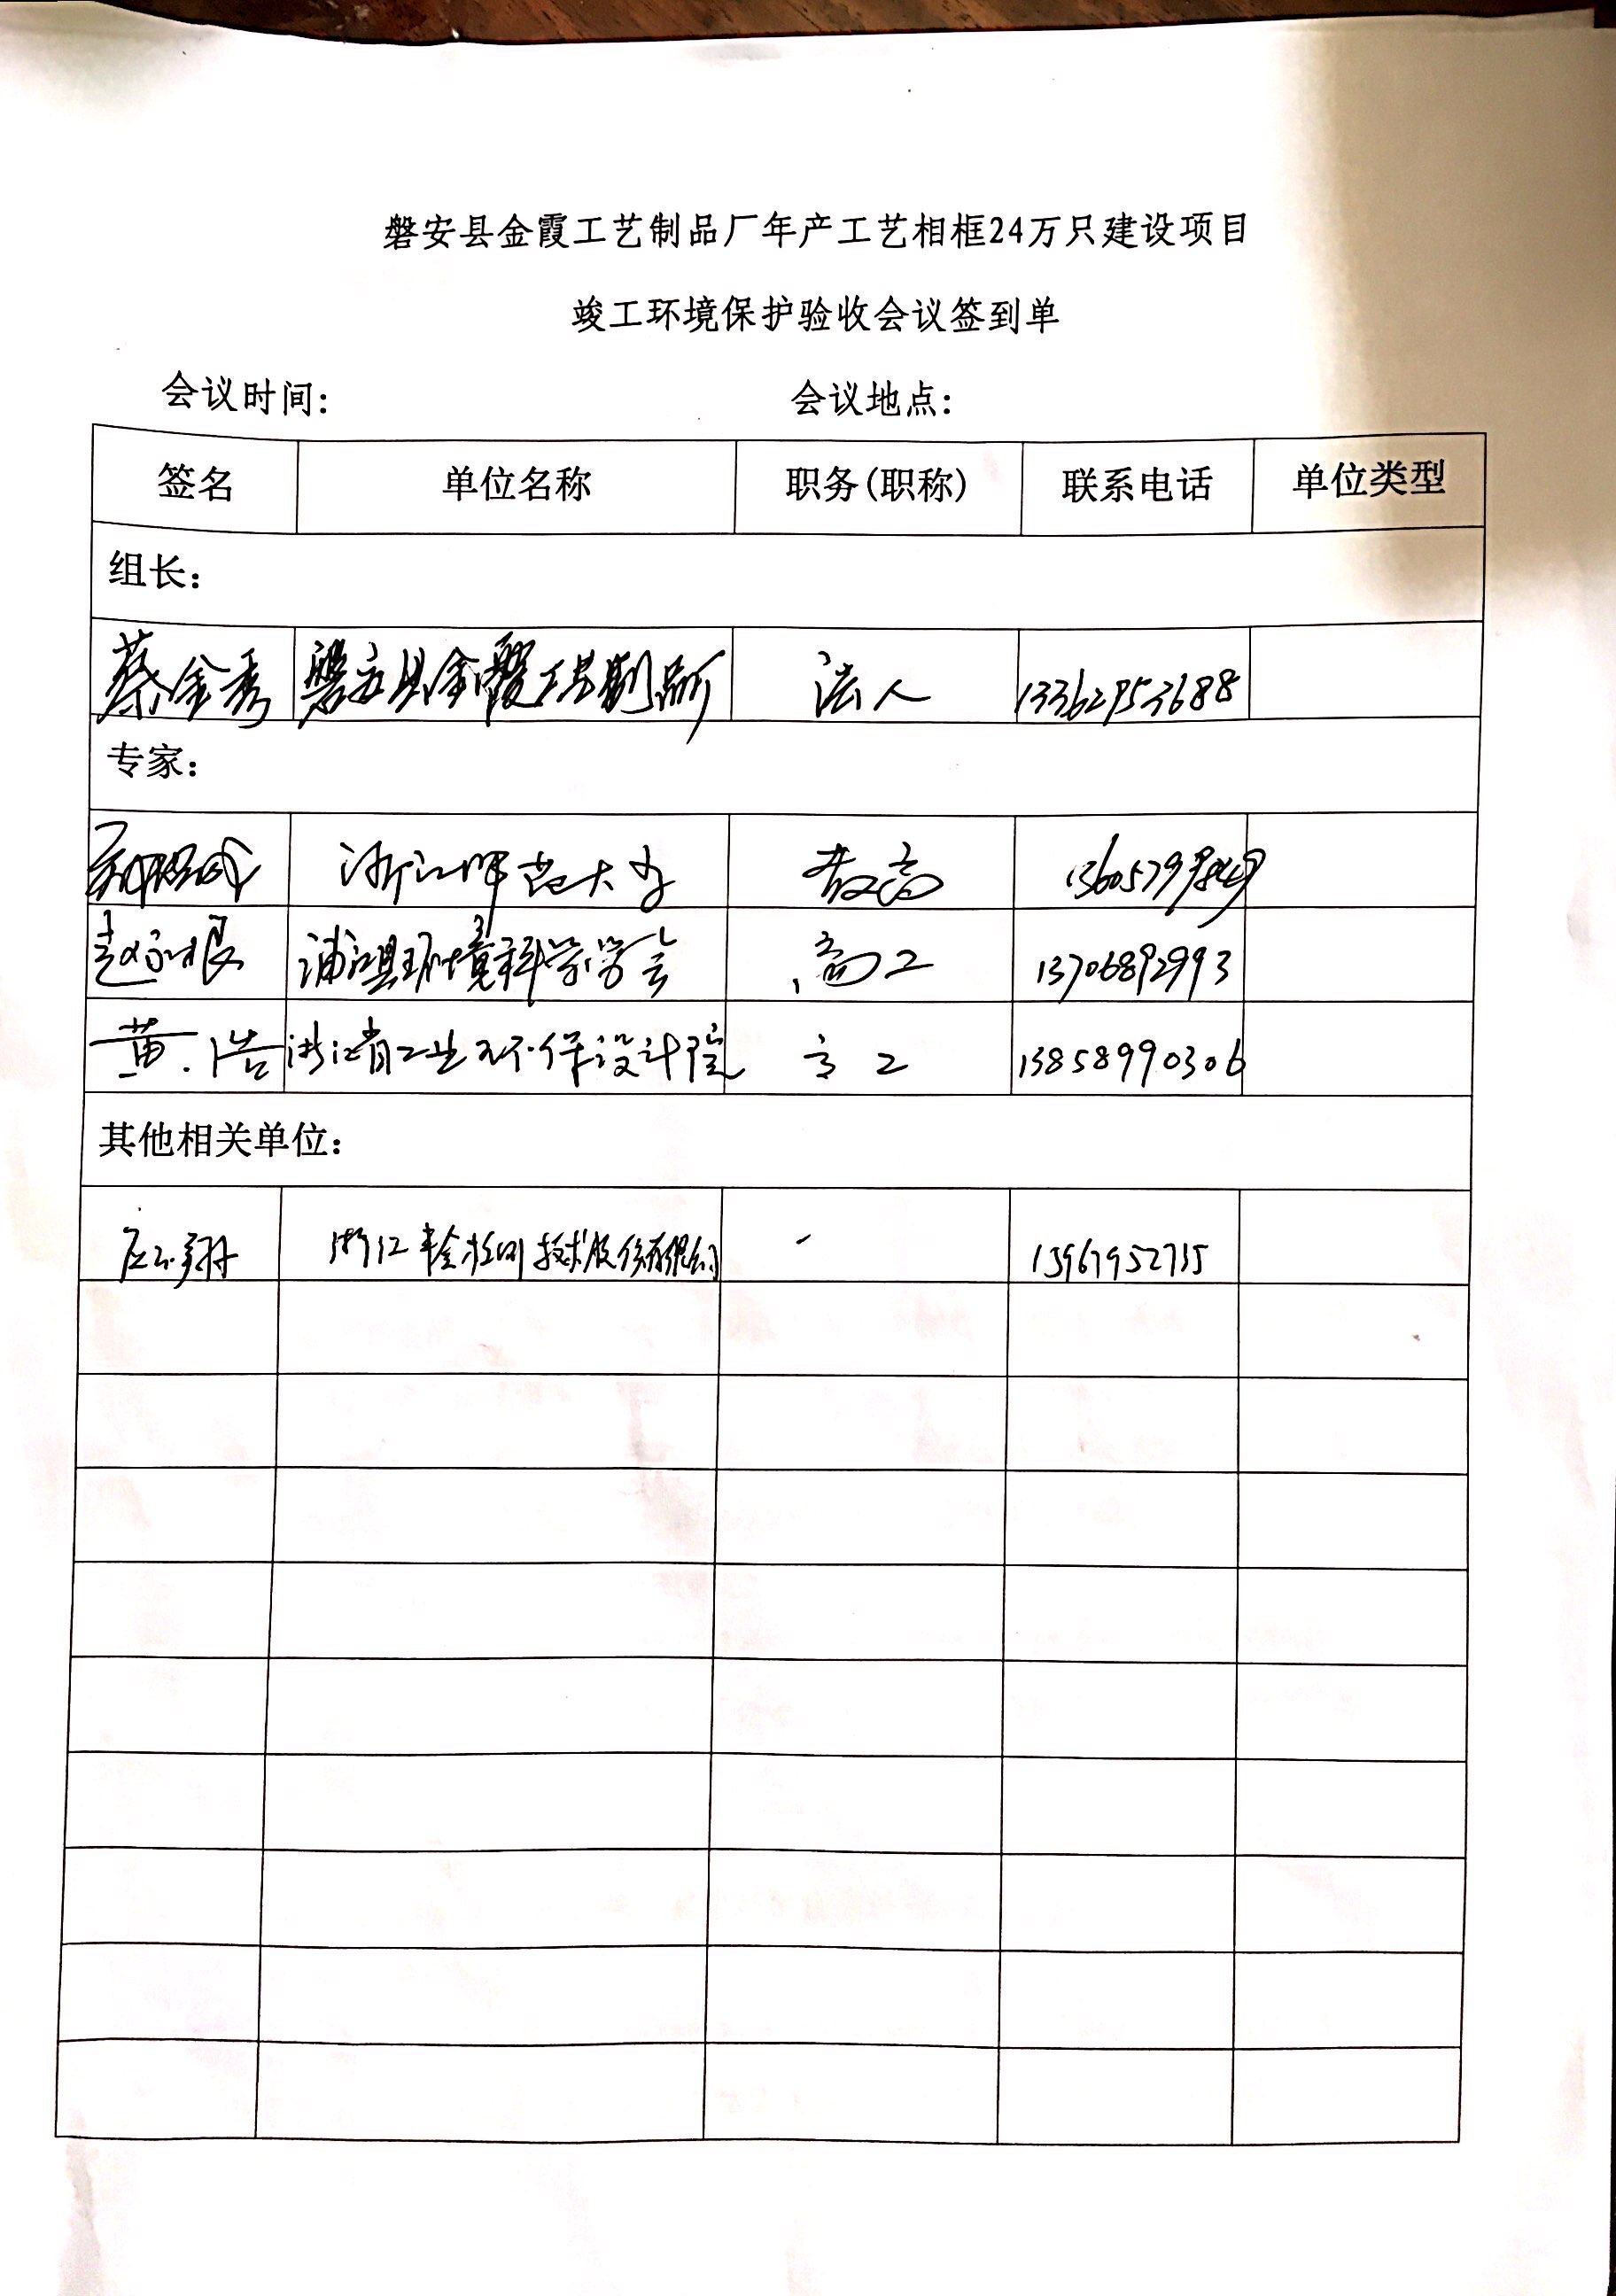 磐安县金霞工艺制品厂年产工艺相框24万只建设项目
竣工环境保护验收会议签到单
会议时间： 会议地点：
签名 单位名称 职务(职称) 联系电话 单位类型
组长：
蔡金秀 磐安县金霞工艺制品厂 法人 13362953688
专家：
浙江师范大学 教高
赵 根 浦江县环境科学学会 高工 13706892993
黄浩 浙江省工业环保设计院 高工 13858990306
其他相关单位：
浙江 检测技术股份有限公司 - 15967952735